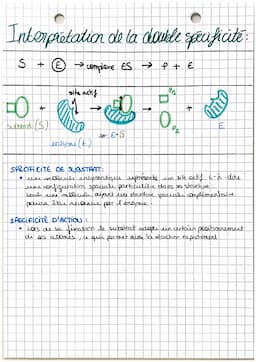 Interprétation de la double spécificité:
S + E → complexe ES → P + E
site actif
P1
substrat (S)
E-S
P2
E
enzyme (E)
SPÉCIFICITÉ DE SUBSTRAT:
• une molécule enzymatique représente un site actif, c-à-dire
une configuration spatiale particulière dans sa structure.
seule une molécule ayant une structure spatiale complémentaire
pourra être reconnue par l'enzyme.
SPÉCIFICITÉ D'ACTION:
• Lors de sa fixation le substrat adopte un certain positionnement
de ses atomes, ce qui permet ainsi la réaction rapidement